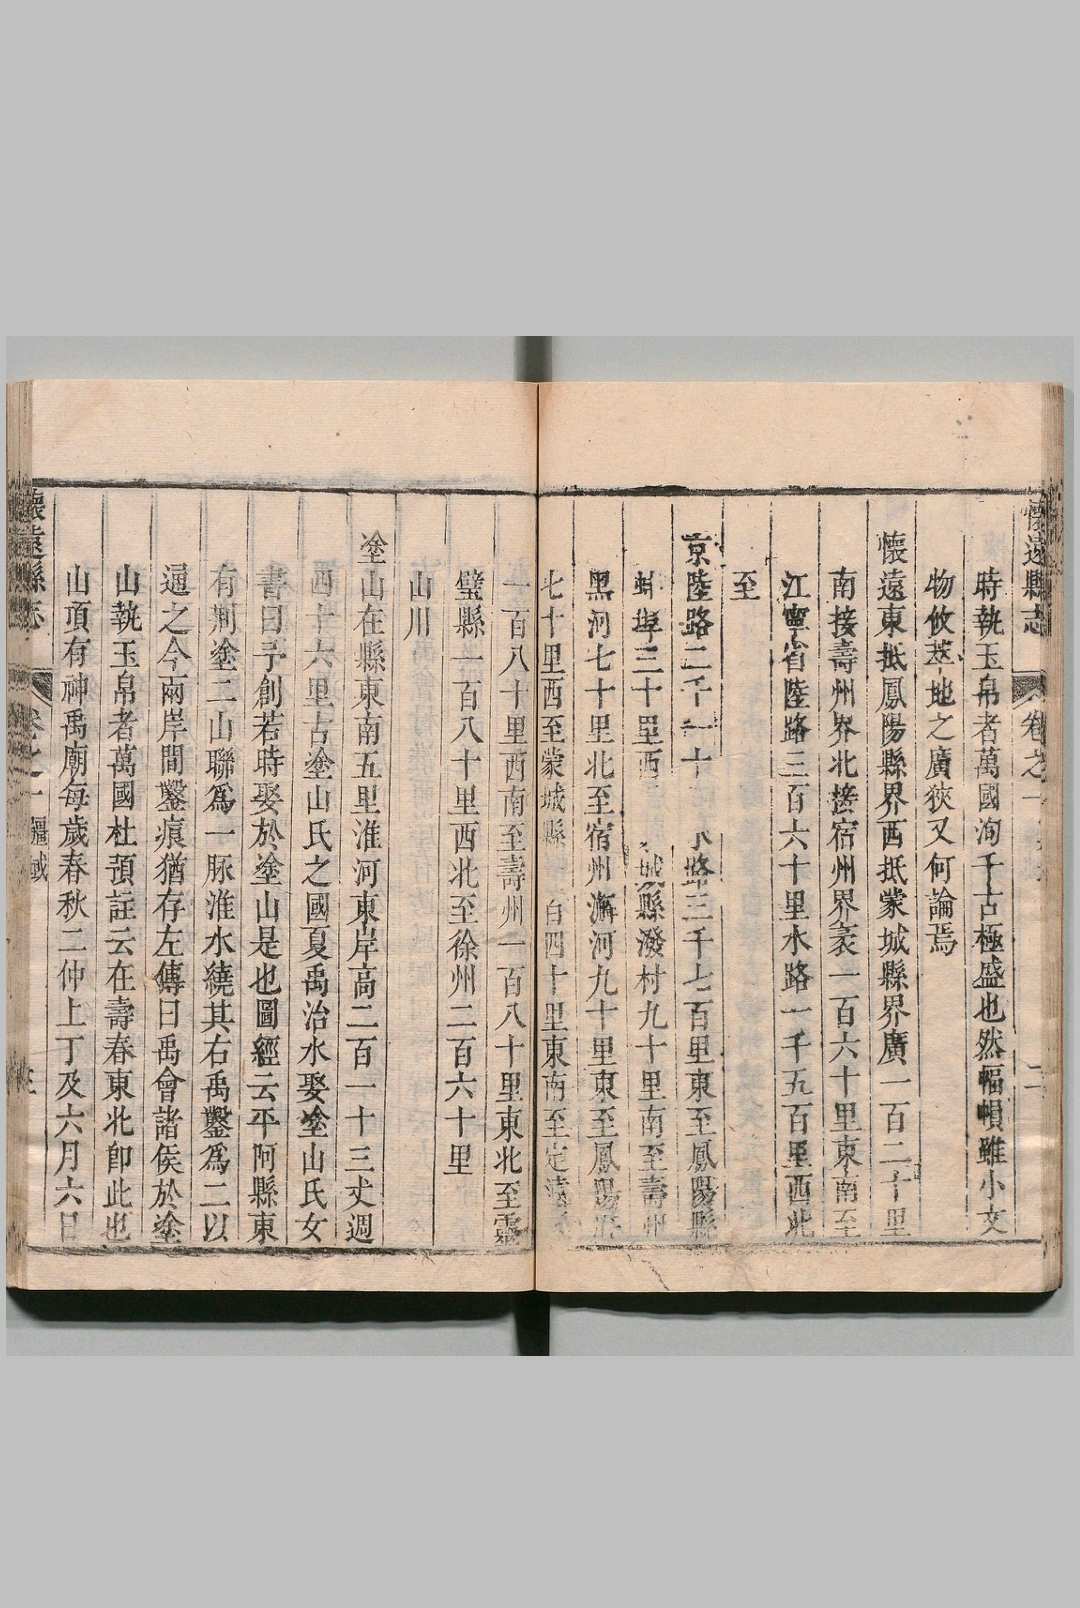 懷遠縣志
卷之一
二
時執玉帛者萬國洵千古極盛也然幅幀雖小文
物攸萃地之廣狹又何論焉
懷遠東抵鳳陽縣界西抵蒙城縣界廣一百二十里
南接壽州界北接宿州界袤一百六十里東南至
江寧省陸路三百六十里水路一千五百里西北
至
京陸路二千一十 水路三千七百里東至鳳陽縣
蚌埠三十里西 城縣潑村九十里南至壽州
黑河七十里北至宿州澥河九十里東至鳳陽府
七十里西至蒙城縣 百四十里東南至定遠縣
一百八十里西南至壽州一百八十里東北至靈
璧縣一百八十里西北至徐州二百六十里
山川
塗山在縣東南五里淮河東岸高二百一十三丈週
西十六里古塗山氏之國夏禹治水娶塗山氏女
書曰予創若時娶於塗山是也圖經云平阿縣東
有荊塗二山聯爲一脉淮水繞其右禹鑿爲二以
通之今兩岸間鑿痕猶存左傳曰禹會諸侯於塗
山執玉帛者萬國杜預註云在壽春東北卽此也
山頂有神禹廟每歲春秋二仲上丁及六月六日
懷遠縣志
卷之一
疆域